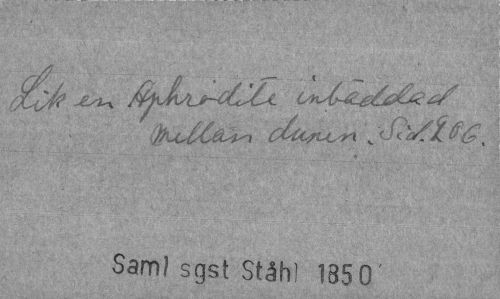 Lik en Aphrodite inbäddad
mellan dunen. Sid. 206.
Saml sgst Ståhl 1850